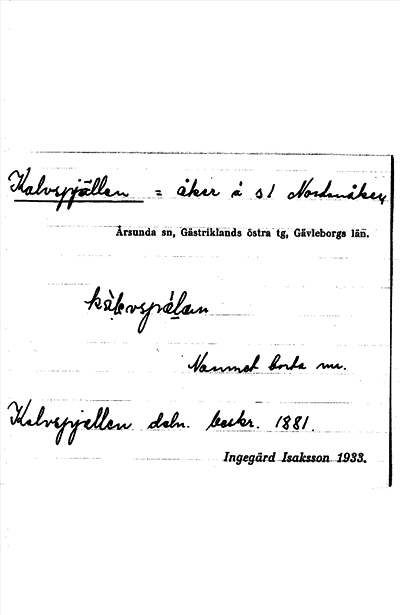 Kalvspjällen = åker å s1 Nordanåker
Årsunda sn, Gästriklands östra tg, Gävleborgs län.
Nammet borta nu.
Kalvspjällen deln. beskr. 1881.
Ingegärd Isaksson 1933.